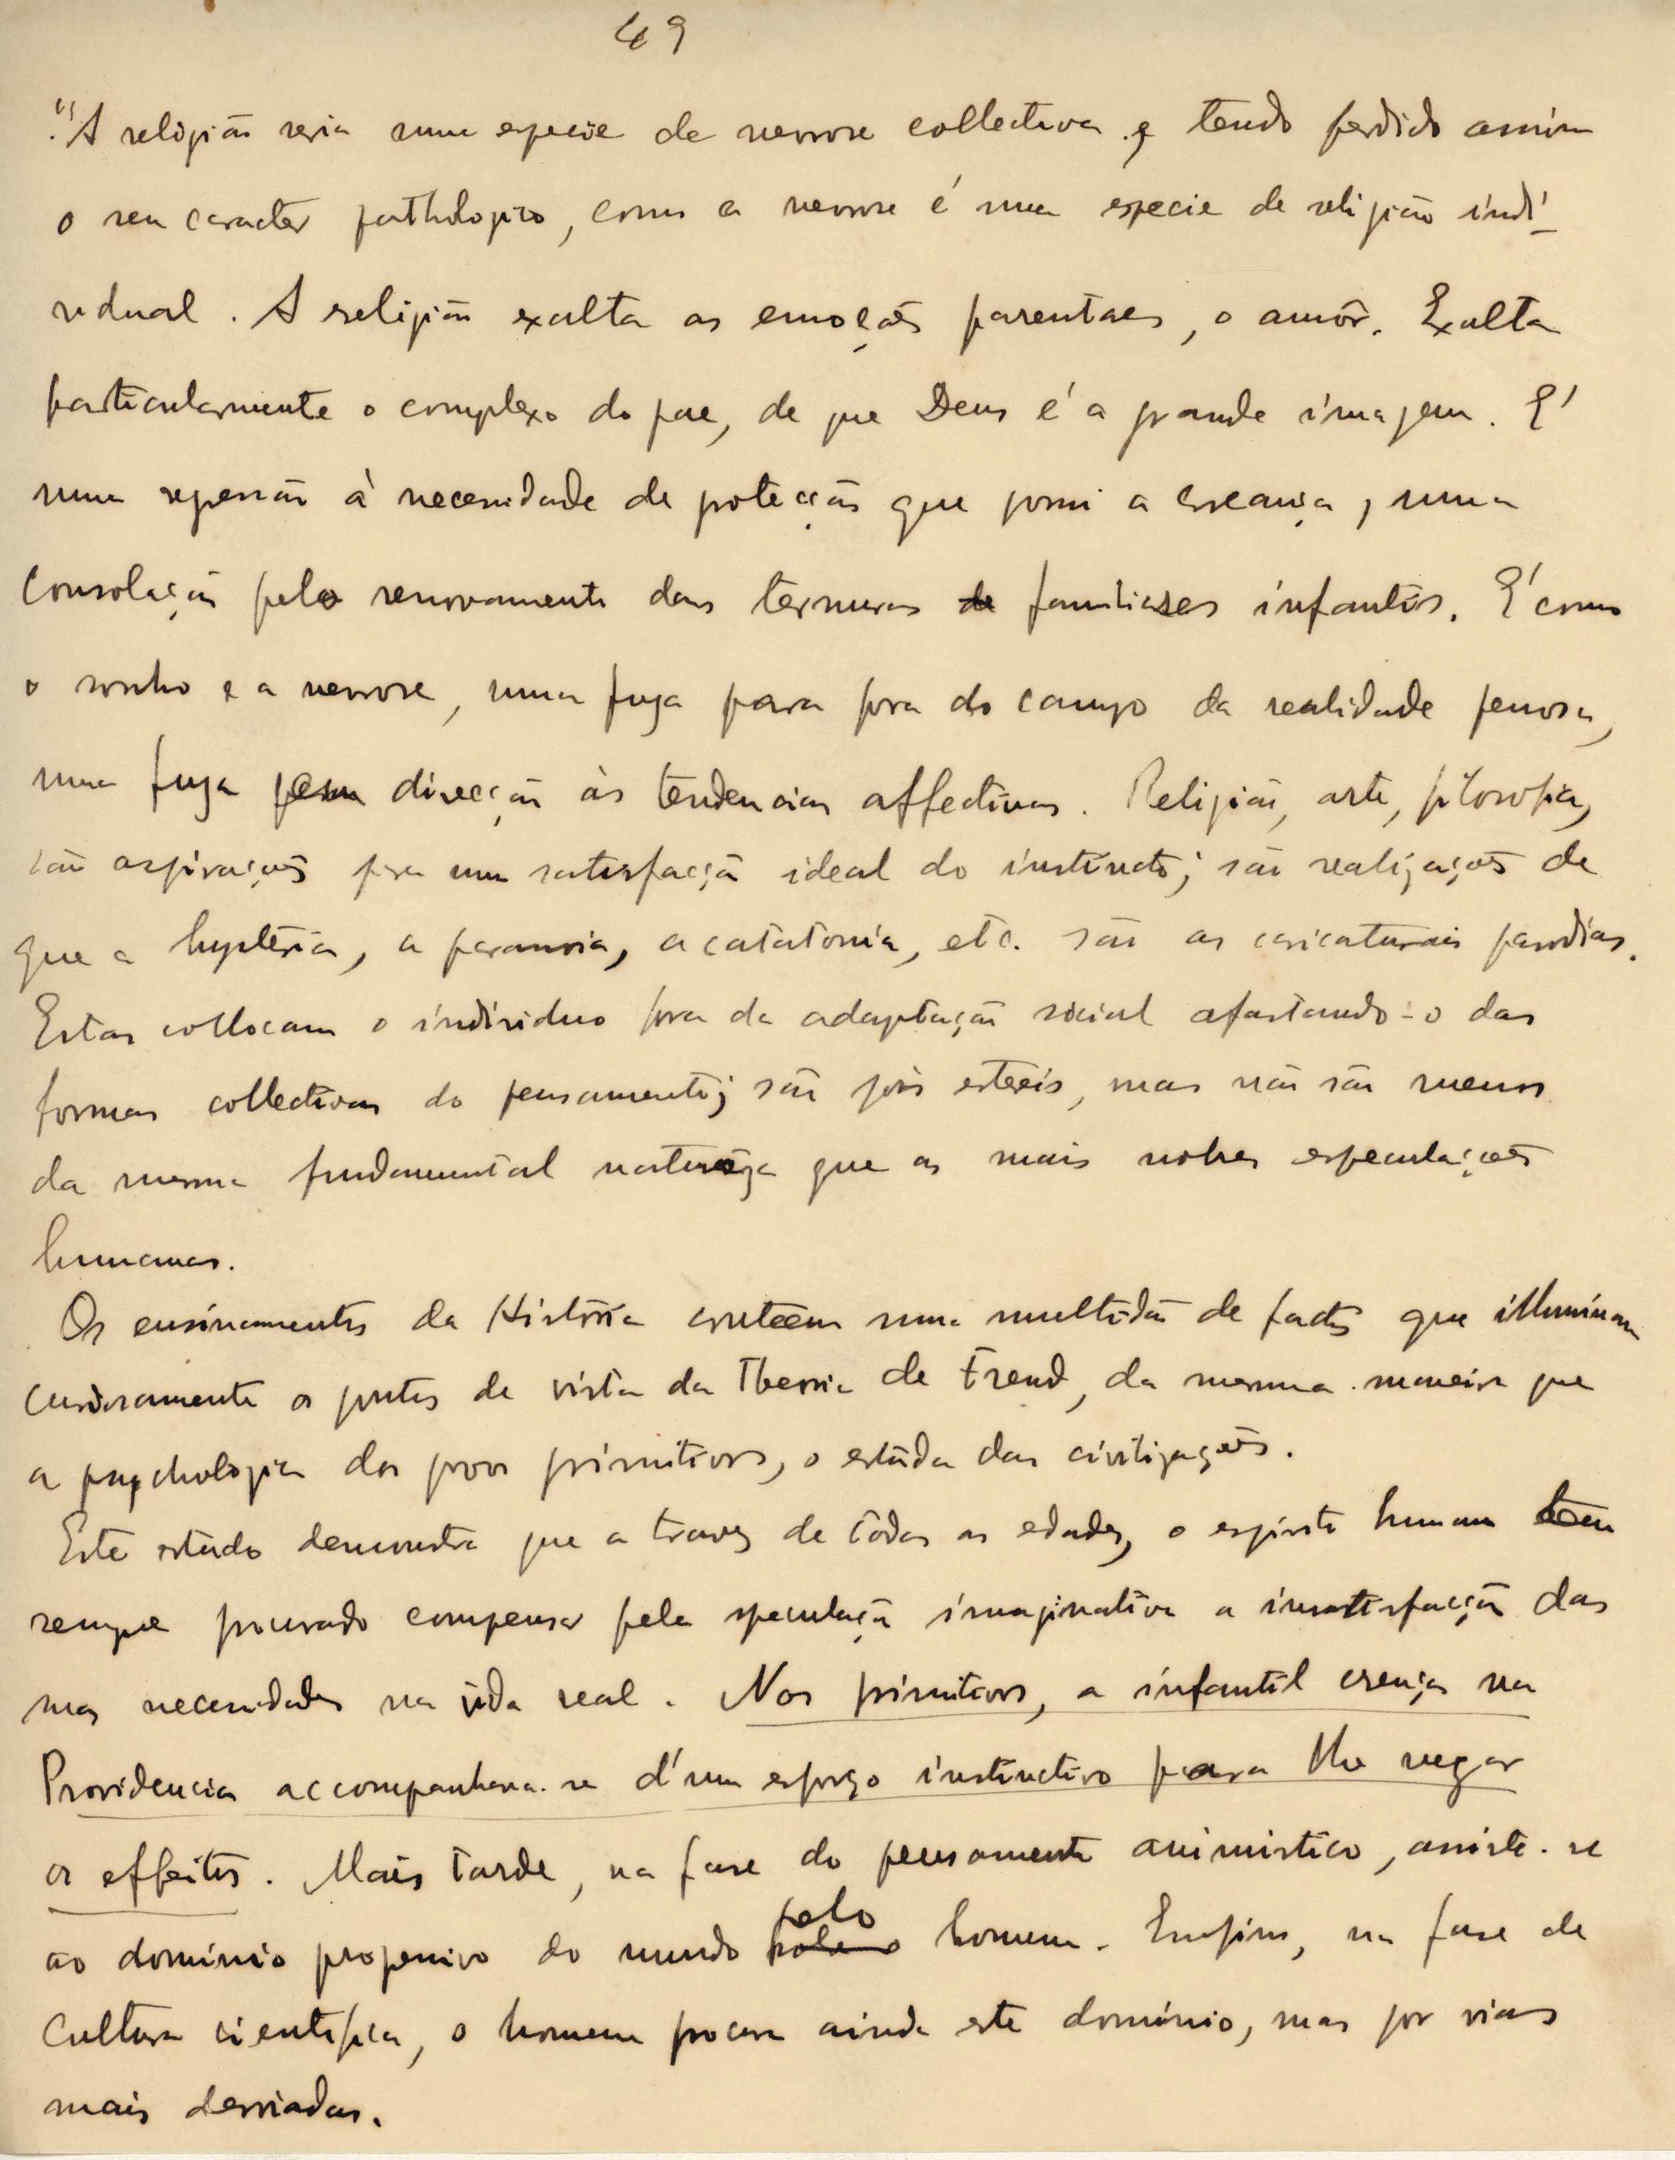 49
"A religião seria uma especie de nevrose collectiva e tendo perdido assim
o seu caracter pathologico, como a nevrose é uma especie de religião indi-
vidual. A religião exalta as emoções parentaes, o amôr. Exalta
particularmente o complexo do pae, de que Deus é a grande imagem. É
uma regressão à necessidade de protecção que possui a creança, uma
consolação pelo renovamento das ternuras de familiares infantis. É como
o sonho e a nevrose, uma fuga para fora do campo da realidade penosa,
uma fuga em direcção às tendencias affectivas. Religião, arte, filosofia,
são aspirações para uma satisfacção ideal do instincto; são realizações de
que a hysteria, a paranoia, a catatonia, etc. são as caricaturais parodias.
Estas collocam o individuo fora da adaptação social afastando-o das
formas collectivas do pensamento; são pois estereis, mas não são menos
da mesma fundamental natureza que as mais nobres especulações
humanas.
Os ensinamentos da História contêem uma multidão de factos que illuminam
curiosamente os pontos de vista da Theoria de Freud, da mesma maneira que
a psychologia dos povos primitivos, o estudo das civilizações.
Este estudo demonstra que a travez de todas as edades, o espirito humano tem
sempre procurado compensar pela speculação imaginativa a insatisfacção das
suas necessidades na vida real. Nos primitivos, a infantil crença na
Providencia accompanhava-se d'um esforço instinctivo para lhe negar
os effeitos. Mais tarde, na fase do pensamento animistico, assiste-se
ao dominio progressivo do mundo pelo homem. Emfim, na fase de
cultura cientifica, o homem procura ainda este dominio, mas por vias
mais desviadas.